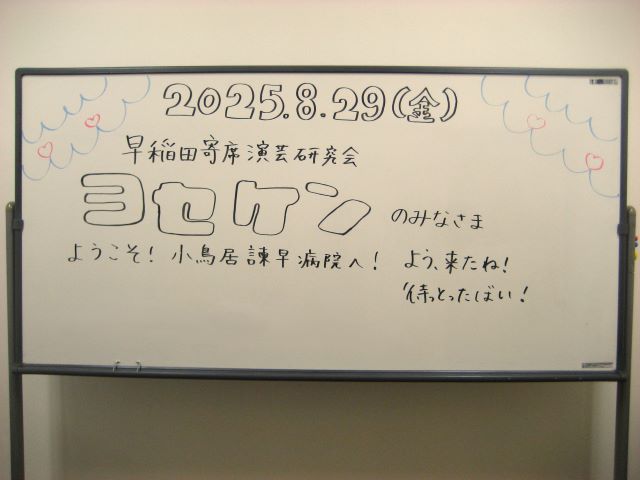 2025.8.29(金)
早稲田寄席演芸研究会
ヨセケン のみなさま
ようこそ! 小鳥居諫早病院へ! よう、来たね!
待っとったばい!